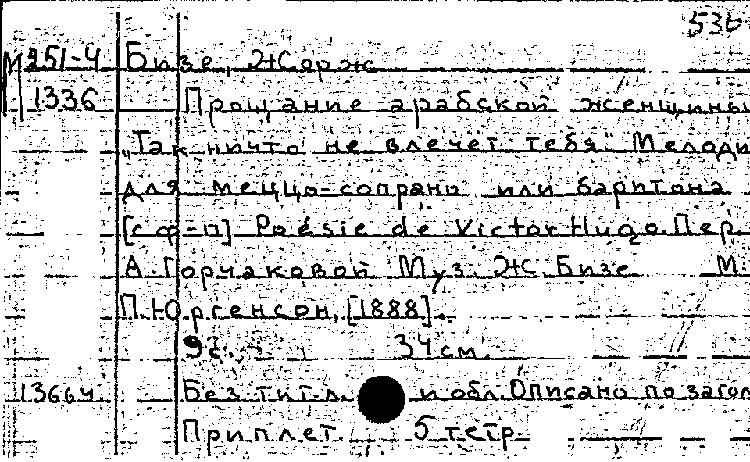 536
М 251-4 Бизе, Жорж
1336 Прощание арабской женщины
„Так ничто не влечет тебя" Мелоди
для меццо-сопрано или баритона
[с ф-п] Poésie de Victor Hugo. Пер.
А. Горчаковой Муз. Ж. Бизе М.
П. Юргенсон, [1888].
9с. 34см.
13664 Без тит. л. и обл. Описано по загол
Приплет. 5 тетр.